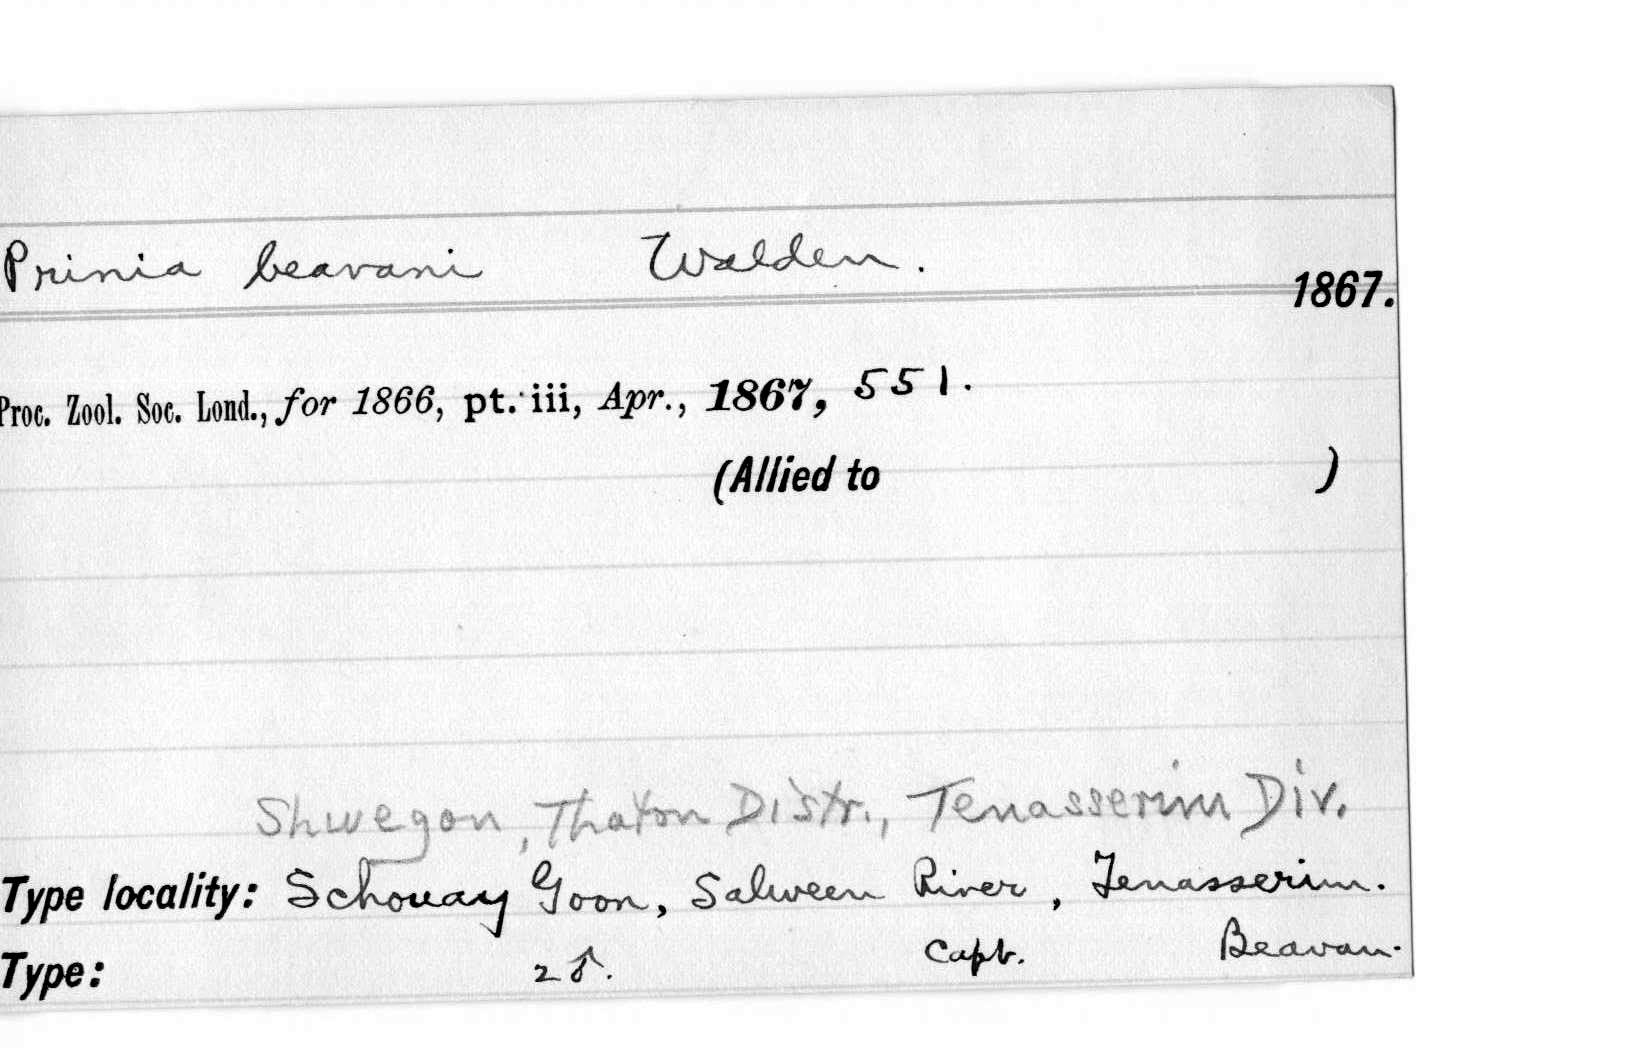 Prinia beavani Walden.
1867.
Proc. Zool. Soc. Lond., for 1866, pt. iii, Apr., 1867, 551.
(Allied to )
Shwegon, Thaton Distr., Tenasserim Div.
Type locality: Schouay Goon, Salween River, Tenasserim.
Type: 2 ♂. Capt. Beavan.